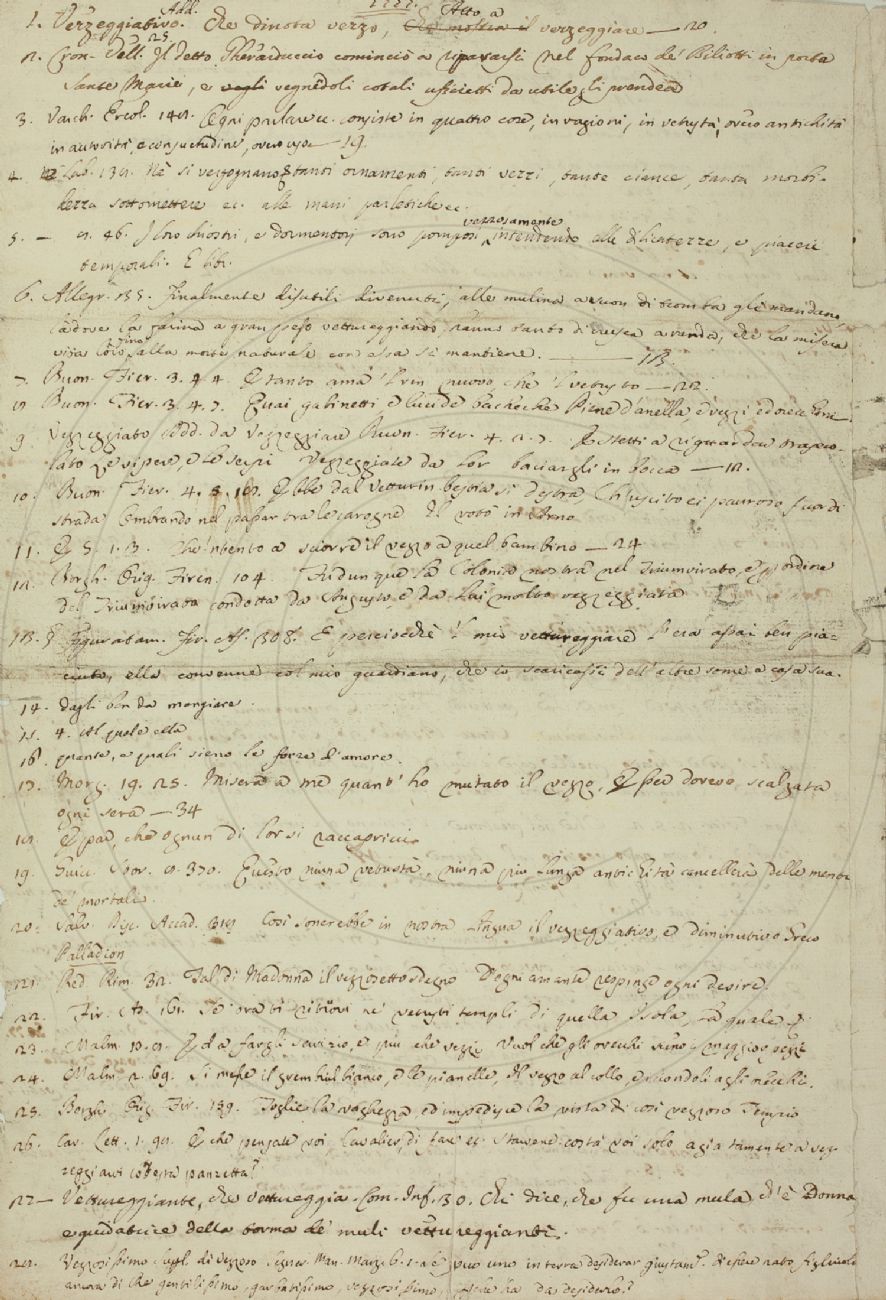 1. Vezzeggiativo. Add. Che dinota vezzo, Atto a vezzeggiare — 20.
2. Cron. Vell. 25. Il detto Gherarduccio cominciò a ripararsi nel fondaco de' Biliotti in porta
Sante Marie, e vegnēdoli cotali uficietti da utile gli prendea
3. Varch. Ercol. Ogni parlare ec. consiste in quattro cose, in ragioni, in vetustà, ovvero antichità
in autorità, e consuetudine, ovvero uso — 19.
4. Lab. Nè si vergognano tanti ornamenti, tanti vezzi, tante ciance, tanta morbi-
dezza sottomettere ec. alle mani parletiche ec.
5. — 46. I loro chiostri, e dormentorj sono pomposi, vezzosamente intendendo alle dilicatezze, e piaceri
temporali.
6. Allegr. Finalmente disutili divenuti, alle mulina a suon di tromba gli mandano
ladove la farina a gran peso vettureggiando, hanno tanto di crusca avanda, che la misera
vita loro fino alla morte naturale con essa si mantiene. —
7. Buon. Fier. 3. 4. 4. E tanto ama 'l rio nuovo, che 'l vetusto — 22.
8. Buon. Fier. 3. 4. 7. Quai gabinetti e lucide bacheche Piene d'anella e vezzi ed orecchini
9. Vezzeggiato Add. da Vezzeggiare Buon. Fier. 4. 2. 7. E stetti a riguardar trapo-
lato Le vipere, e le serpi Vezzeggiate da lor baciargli in bocca —
10. Buon. Fier. 4. Ebbe dal Vetturin bestia sì destra Ch'uscitoci pauroso fuor di
strada Ombrando nel passar tra le carogne Il votò in Arno
11. E 5. 1. 3. Sciorre il vezzo a quel bambino — 24
12. Borgh. Orig. Firen. 104. Fu dunque la Colonia nostra nel Triumvirato, e per ordine
del Triumvirato condotta da Augusto e da lui molto vezzeggiata
13. § Figuratam. Fir. As. 308. E perciocchè 'l mio vettureggiare l'era assai ben pia-
ciuto, ella convenne col mio guardiano, che io scaricassi dell'altre some a casa sua.
14. dagli ben da mangiare.
15. 4. Al quale ella
16. quante, e quali sieno le forze d'amore.
17. Morg. 19. 25. Misera a me quant' ho mutato il vezzo, E per dovevo scalzata
ogni sera — 34
18. E par, che ognun di lor si raccapricci
19. Guicc. Stor. 370. Questo niuna vetustà, niuna più lunga antichità cancellerà delle menti
de' mortali.
20. Salv. Disc. Accad. Così sonerebbe in nostra lingua il vezzeggiativo, e diminutivo Greco
Palladion
21. Red. Rim. 32. Tal di Madonna il vezzosetto sdegno D'ogni amante respinge ogni desire
22. Fir. As. 161. Se' ora ti ritrovi ne' vetusti templi di quella Isola, la quale
23. Malm. E da fargli servizio, e più che vezzi Vuol che gli orecchi sieno
24. Malm. 2. 69. Si messe il grembiul bianco, e le pianelle, Il vezzo al collo, e i ciondoli agli orecchi.
25. Borgh. Orig. Fir. 159. Toglie la vaghezza, ed impedisce la vista di così vezzoso Tempio
26. Car. Lett. 1. E che pensate voi, Cavalier, di fare ec. Starvene costà voi solo agiatamente a vez-
zeggiarvi cotesta panzetta?
27 — Vettureggiante, che vettureggia. Com. Inf. 30. Chi dice, che fu una mula ch'è Donna
e guidatrice della torma de' muli vettureggianti.
28. Vezzosissimo Superl. di Vezzoso. Segner. Man. Marz. può uno in terra desiderar giustam. di essere nato figliuolo
ancora di Re gentilissimo, garbatissimo, vezzosissimo, che ha da desiderlo?